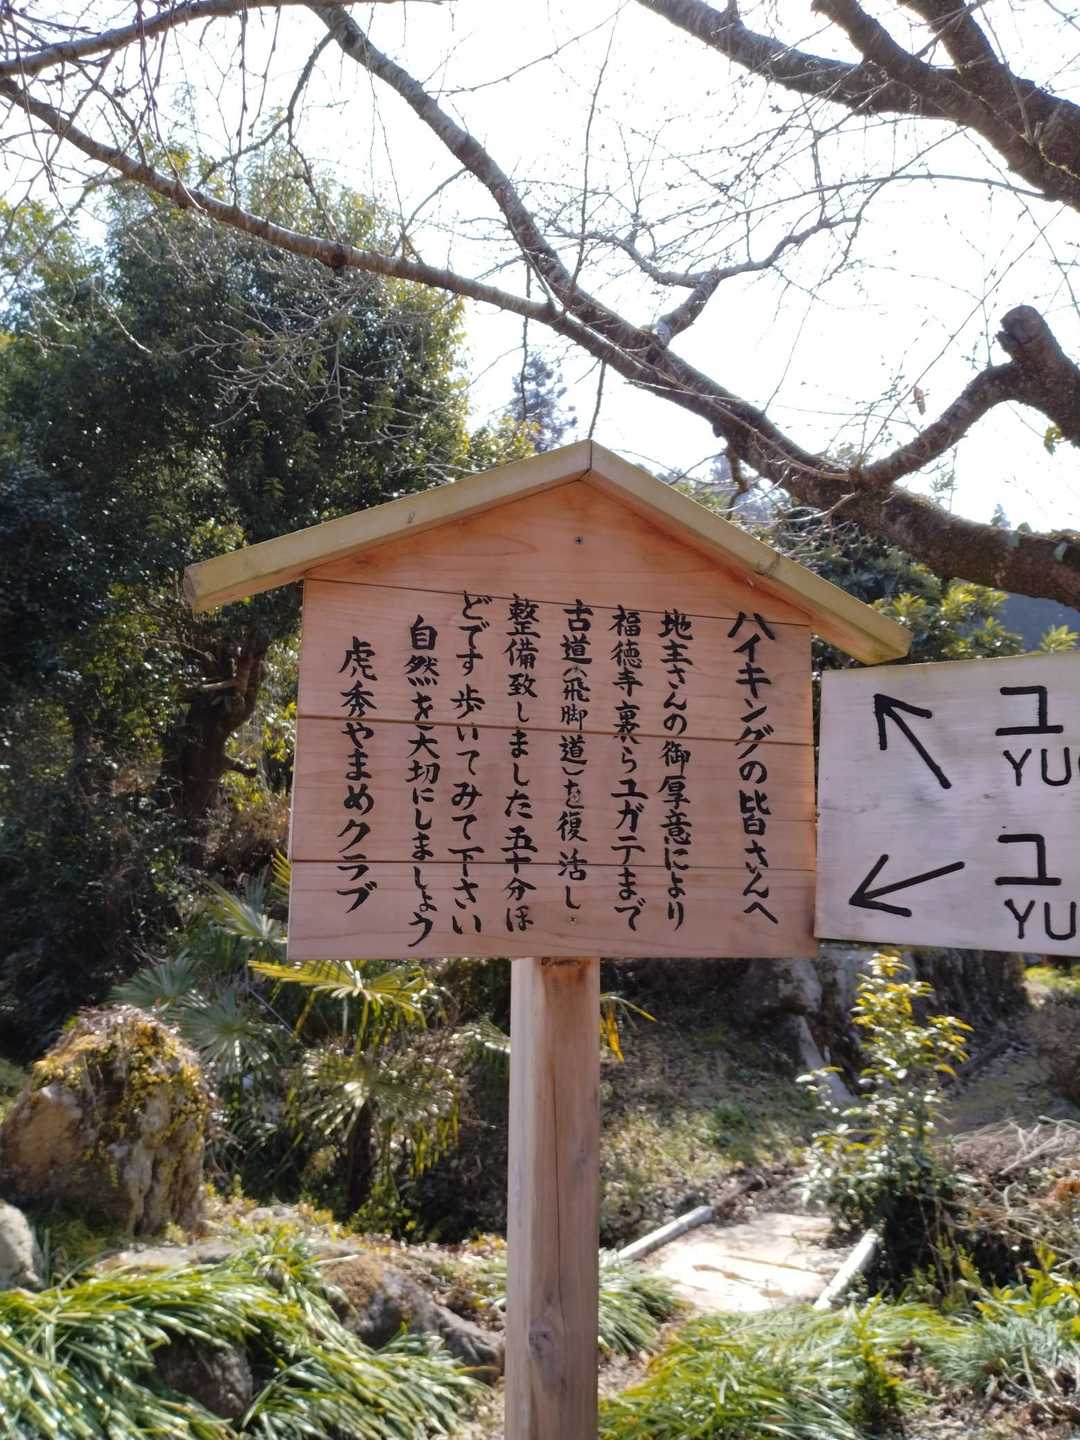 ハイキングの皆さんへ
地主さんの御厚意により
福徳寺裏からユガテまで
古道(飛脚道)を復活し
整備致しました五十分ほ
どです歩いてみて下さい
自然を大切にしましょう
虎秀やまめクラブ
ユ
YU
ユ
YU